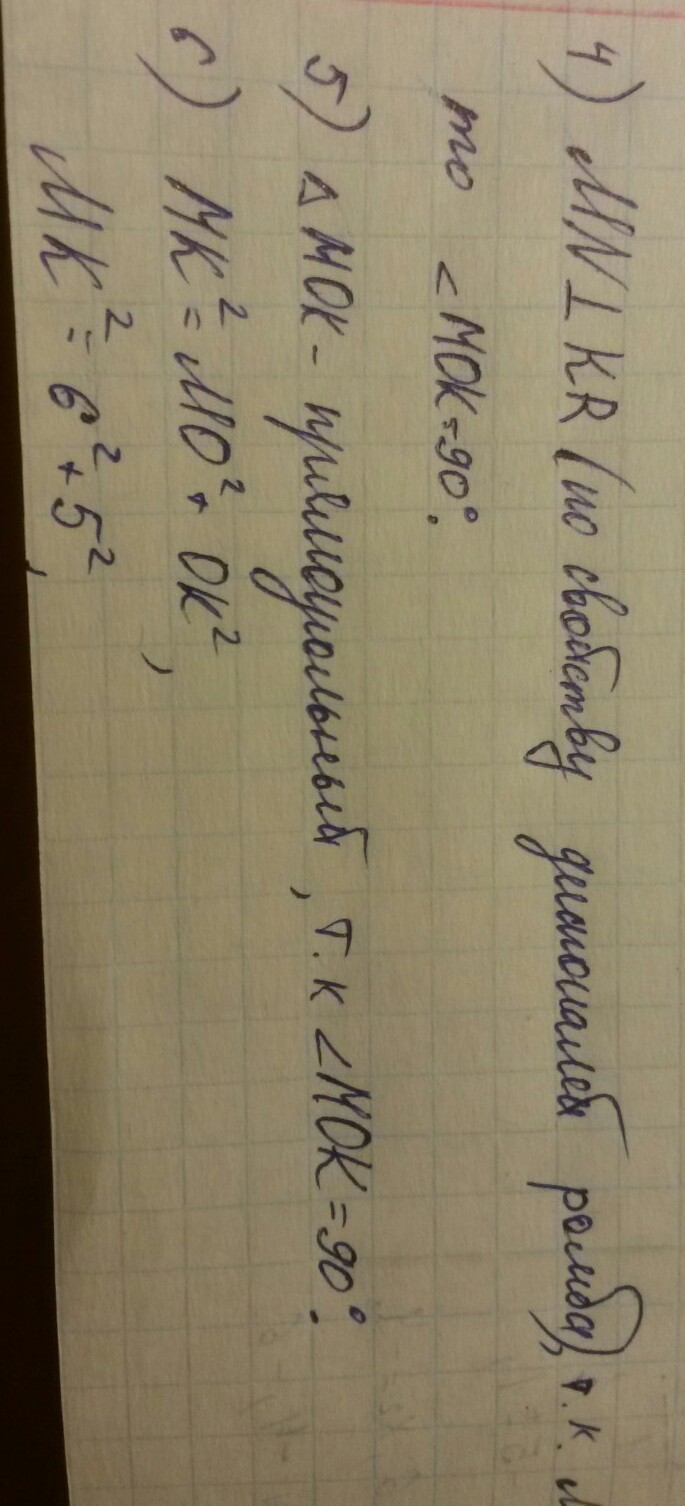 4) MN ⊥ KR (по свойству диагоналей ромба), т.к. M
то ∠MOK = 90°.
5) △ MOK - прямоугольный, т.к ∠MOK = 90°.
6) MK² = MO² + OK²,
MK² = 6² + 5²,